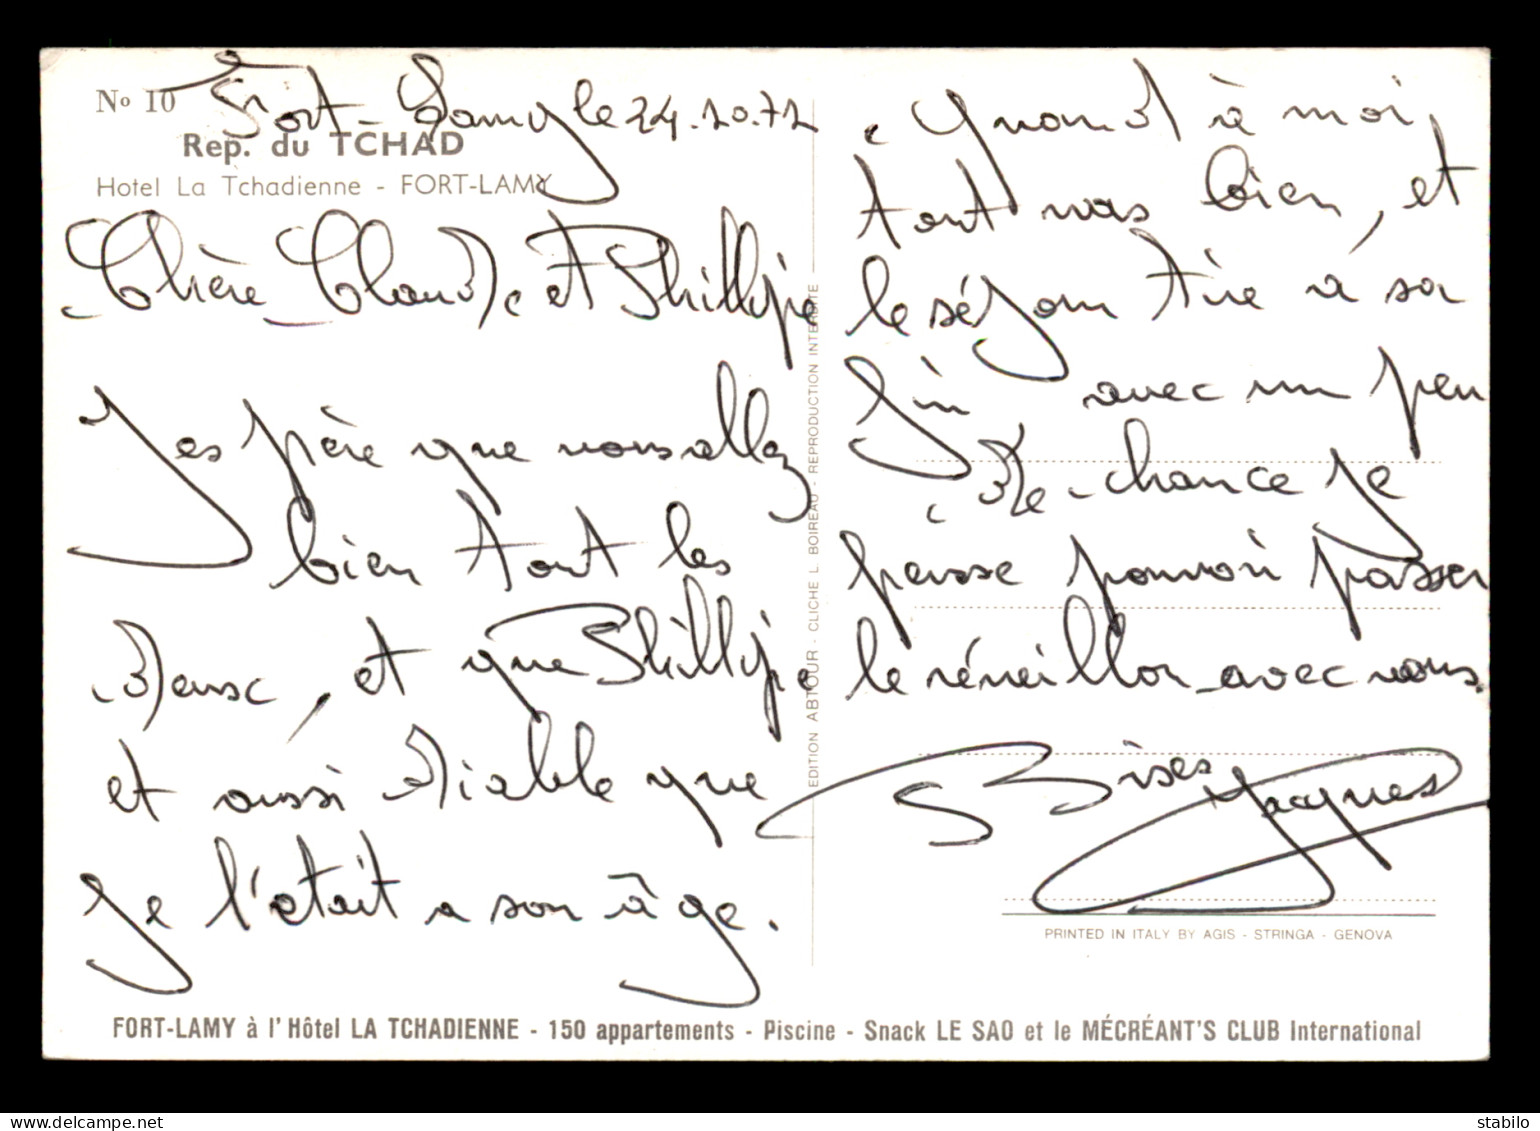 No 10
Fort-Lamy le 24.10.72
Rep. du TCHAD
Hotel La Tchadienne - FORT-LAMY
Chère Claude et Phillipe
J'espère que vous allez
bien tout les
deux, et que Phillipe
et aussi diable que
je l'était a son âge.
Quand à moi,
tout vas bien, et
le séjour tire à sa
fin avec un peu
de chance je
pense pouvoir passer
le réveillon avec vous.
Bises Jacques
EDITION ABTOUR - CLICHE L. BOIREAU - REPRODUCTION INTERDITE
PRINTED IN ITALY BY AGIS - STRINGA - GENOVA
FORT-LAMY à l'Hôtel LA TCHADIENNE - 150 appartements - Piscine - Snack LE SAO et le MÉCRÉANT'S CLUB International
www.delcampe.net
stabilo